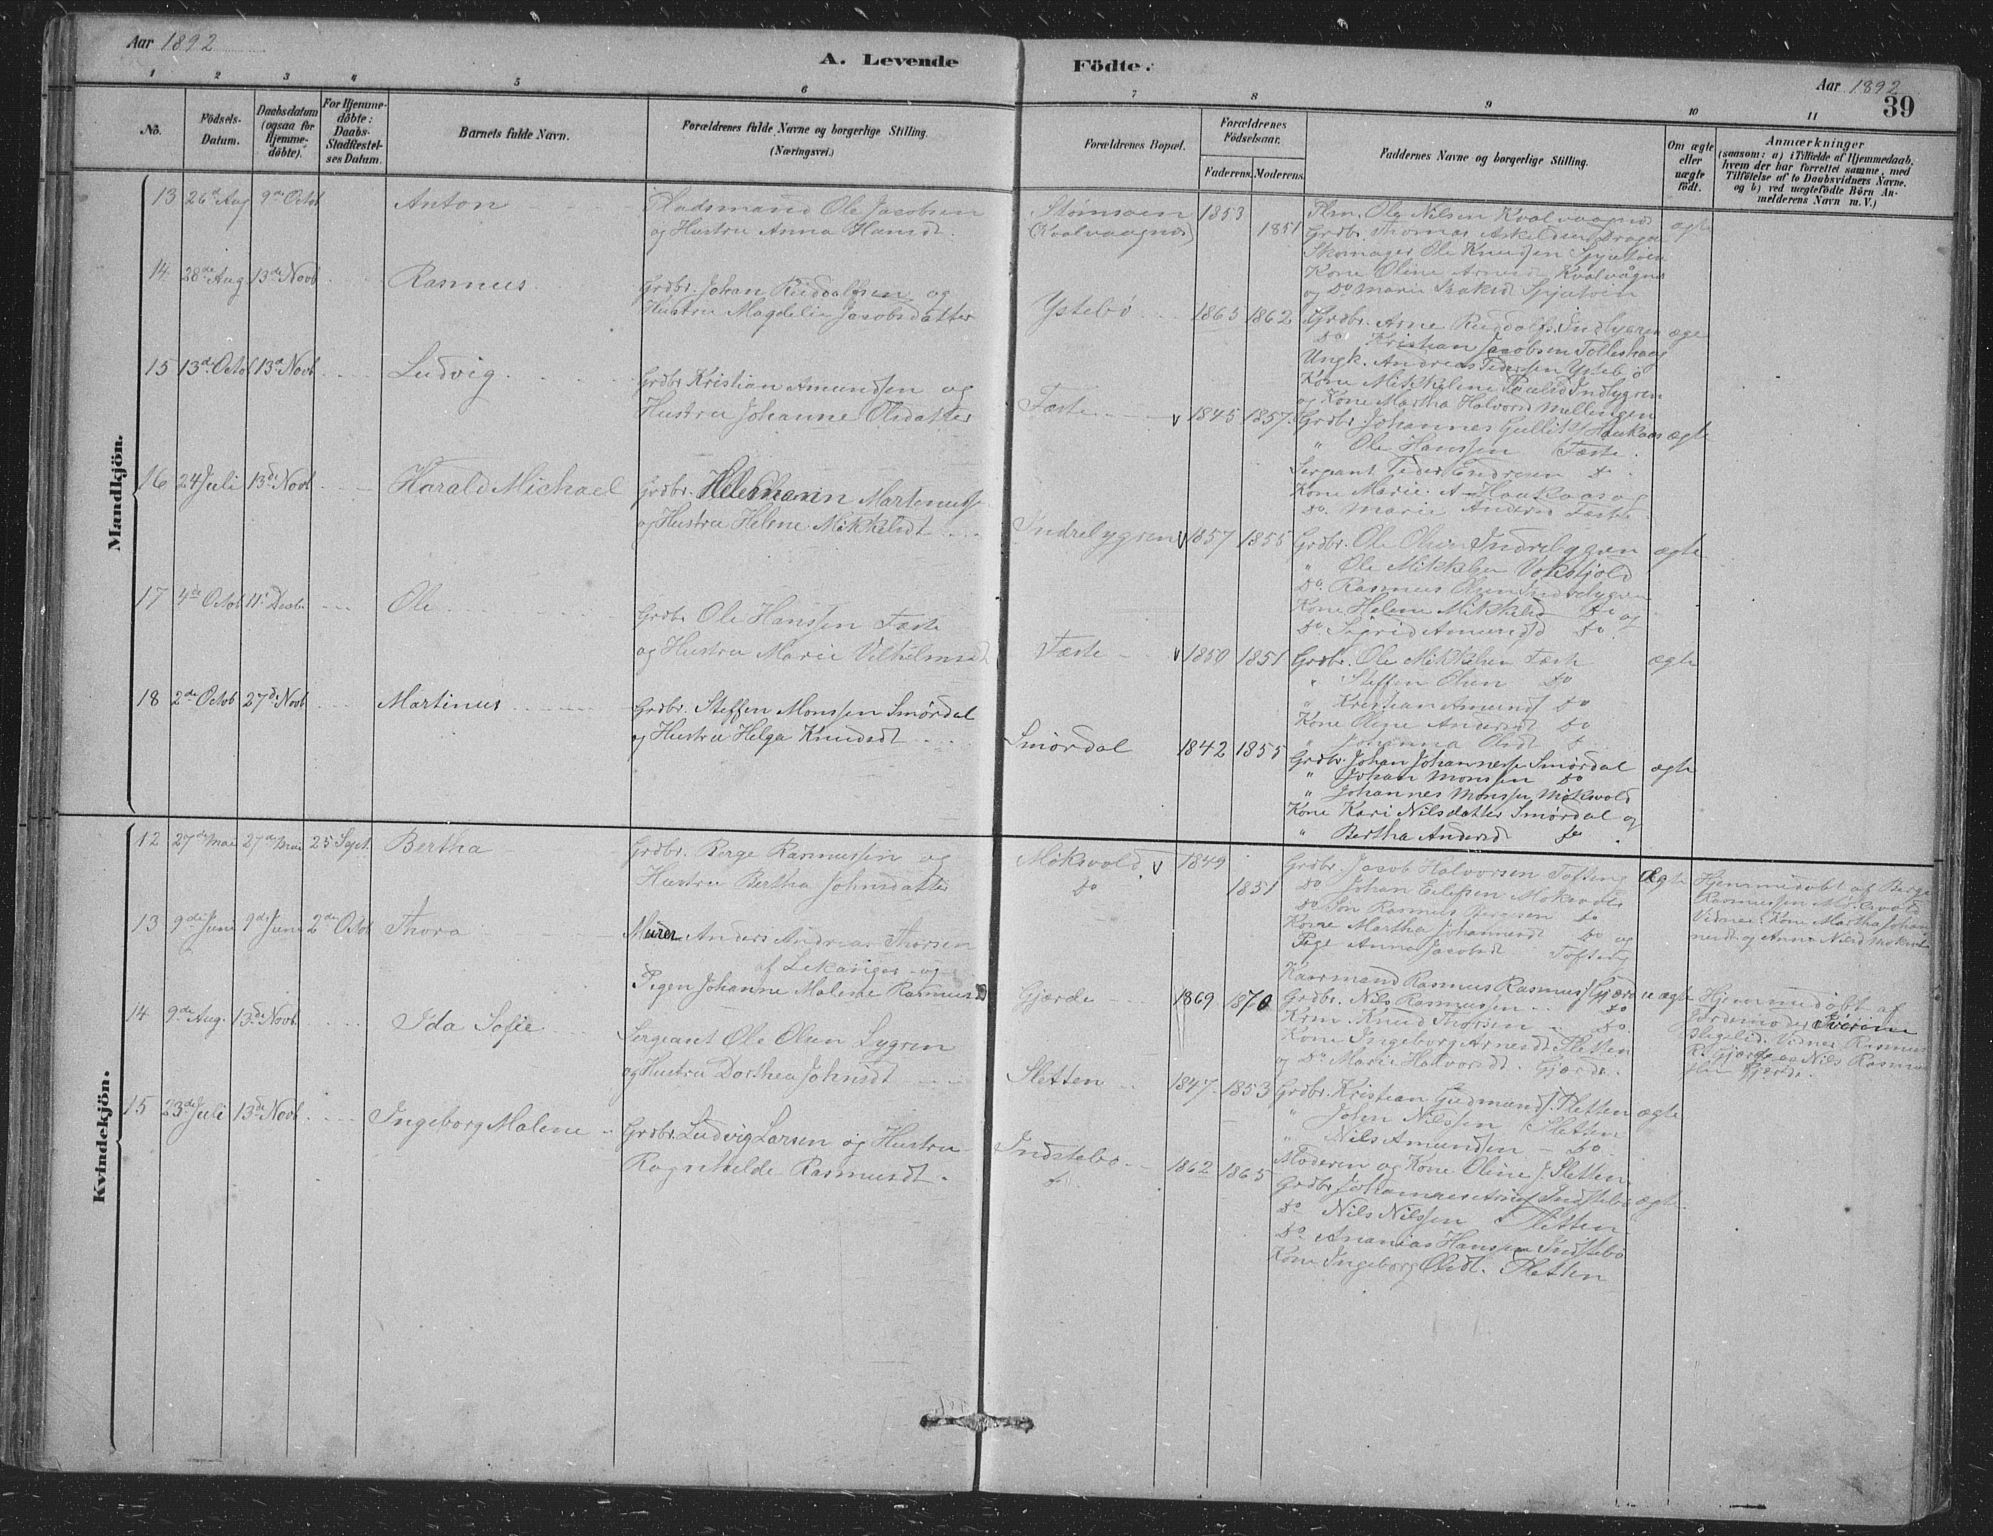 Aar 1892
A. Levende
Födte.
Aar 1892
39
1 2 3 4 5 6 7 8 9 10 11
No.
Födsels-
Datum.
Daabsdatum
(ogsaa for
Hjemme-
döbte).
For Hjemme-
döbte:
Daabs-
Stadfæstel-
ses Datum.
Barnets fulde Navn.
Forældrenes fulde Navne og borgerlige Stilling.
(Næringsvei.)
Forældrenes Bopæl.
Forældrenes
Födselsaar.
Faderens. Moderens.
Faddernes Navne og borgerlige Stilling.
Om ægte
eller
uægte
födt.
Anmærkninger
(saasom: a) i Tilfælde af Hjemmedaab,
hvem der har forrettet samme, med
Tilföielse af to Daabsvidners Navne.
og b) ved uægtefödte Börn An-
melderens Navn m. V.)
Mandkjön.
13 26de Aug 9de Octob Anton
Pladsmand Ole Jacobsen
og Hustru Anna Hansdt.
Strömsoen
(Kvalvaagnes)
1853
1851
Plm. Ole Nilsen Kvalvaagnes
Grdbr. Thomas Askeldsen
Skomager Ole Knudsen Spjutöien
Kone Oline Arnesd. Kvalvågnes
og Do Marie Isaksd Spjutöien
ægte
14 28de Aug 13de Novb Rasmus
Grdbr. Johan Ruddolfsen og
Hustru Magdeli Jacobsdatter
Ystebö 1865 1862
Grdbr. Arne Ruddolfs. Indbygren
Do Kristian Jacobsen Tolleshaug
Ungk. Andreas Pedersen Ystebö
Kone Mikkeline Paulsd Indbygren
og Kone Martha Halvorsd Mellingen
ægte
15 13de Octob 13de Novb Ludvig
Grdbr. Kristian Amundsen og
Hustru Johanne Olsdatter
Fæste v 1845 1857
Grdbr. Johannes Gullikss Haukaas
" Ole Hanssen Fæste
Sergeant Peder Endresen Do
Kone Marie A Haukaas og
Do. Marie Andersd Fæste.
ægte
16 24 Juli 13de Novb Harald Michael
Grdbr. Helemann Martinuss
og Hustru Helene Mikkelsdt
Indrebygren v 1857 1855
Grdbr. Ole Olsen Indrebygren
" Ole Mikkelsen
Do. Rasmus Olsen Indrebygren
Kone Helene Mikkelsd Do og
Do Sigrid Amundsd Do
ægte
17 4de Octob 11. Decbr Ole
Grdbr Ole Hanssen Fæste
og Hustru Marie Vilhelmsdt
Fæste v 1850 1851
Grdbr. Ole Mikkelsen Fæste
" Steffen Olsen Do
" Kristian Amunds Do
Kone Oline Andersdt Do
" Johanna Olsdt
ægte
18 2de Octob 27de Novb Martinus
Grdbr. Steffen Monssen Smördal
og Hustru Helga Knudsdt
Smördal 1842 1855
Grdbr. Johan Johannesse Smördal
" Johan Monssen Do
" Johannes Monssen Mökevold
Kone Kari Nilsdatter Smördal og
" Bertha Andersd Do
ægte
Kvindekjön.
12 27de Mai 27de Mai 25 Sept. Bertha
Grdbr. Berge Rasmussen og
Hustru Bertha Johnsdatter
Mökevold v
Do
1849
1851
Grdbr. Jacob Halvorsen Tofteng
Do Johan Eilefsen Mökevold
Do Sön Rasmus Bergesen Do
Kone Martha Johannesdt Do og
Pige Anna Jacobsdt Tofteng
Ægte
Hjemmedöbt af Berge
Rasmussen Mökevold
Vidner: Kone Martha Johan
nesdt og Anna Nilsd Mökevold
13 9de Juni 9de Juni 2de Octob Thora
Murer Anders Andreas Thorsen
af Lekanger og
Pigen Johanne Malene Rasmusd
Gjærde 1869 1870
Kaarmand Rasmus Rasmuss Gjærde
Grdbr. Nils Rasmussen Do
Krm. Knud Thorsen Do.
Kone Ingeborg Arnesdt Sletten
og Do Marie Halvorsdt. Gjærde.
uægte
Hjemmedöbt af
Jordemoder Severine
Vidner Rasmus
R. Gjærde og Nils Rasmus
sen Gjærde.
14 9de Aug. 13de Novb Ida Sofie
Sergeant Ole Olsen Lygren
og Hustru Dorthea Johnsdt
Sletten 1847 1853
Grdbr. Kristian Gudmunds. Sletten
" John Nilssen Sletten
" Nils Amundsen Do.
Moderen og Kone Oline J. Sletten
ægte
15 23de Juli 13de Novb Ingeborg Malene
Grdbr. Ludvig Larsen og Hustru
Ragnhilde Rasmusdt.
Indstebö
Do
1862 1865
Grdbr. Johannes Arnes Indstebö
Do Nils Nilssen Sletten
Do Ananias Hanssen Indstebö
Kone Ingeborg Olsdt. Sletten
ægte